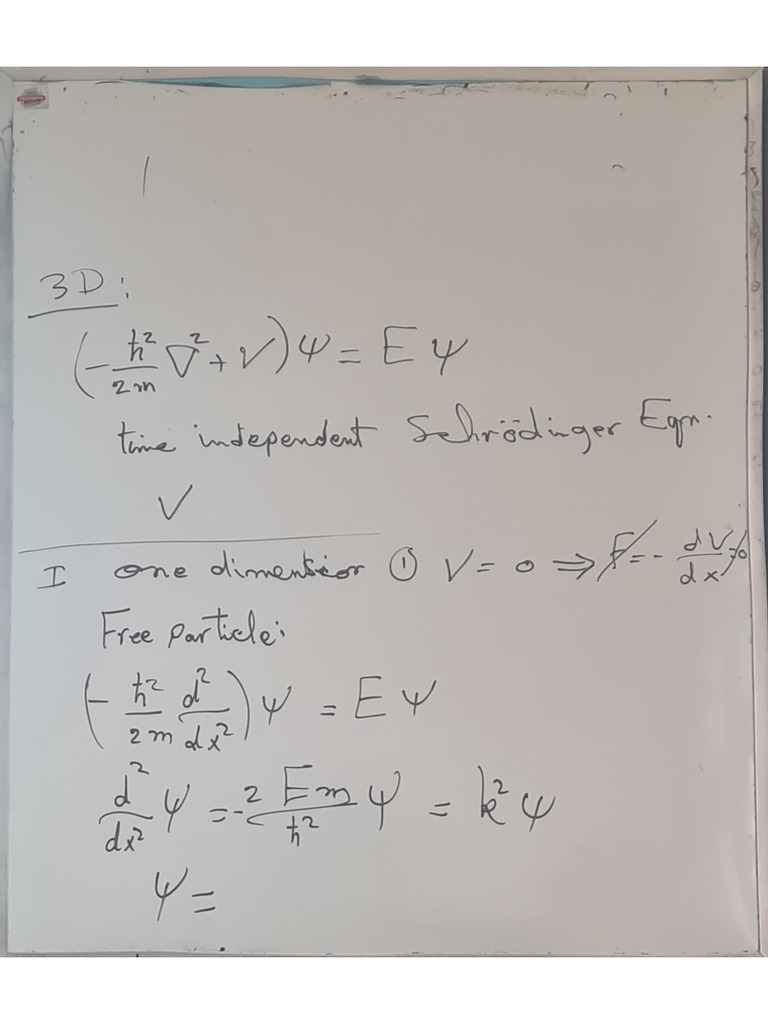 3D:
(-ħ²/2m ∇² + V)ψ = Eψ
time independent Schrödinger Eqn.
V
I one dimension ① V = 0 ⇒ F = - dV/dx = 0
Free particle:
(-ħ²/2m d²/dx²)ψ = Eψ
d²/dx² ψ = -2Em/ħ² ψ = k²ψ
ψ =